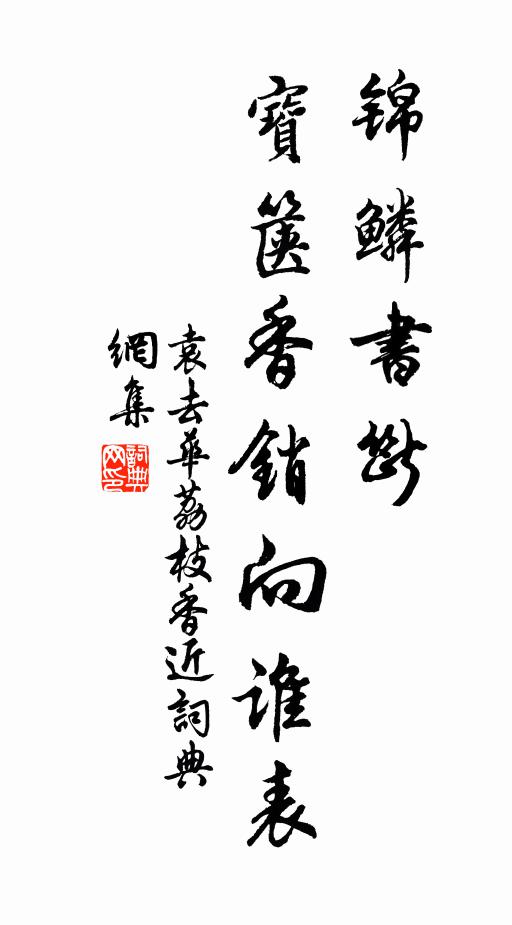 锦鳞書斷
寶篋香銷向誰表
袁去華荔枝香近詞典
網集
詞典
网印